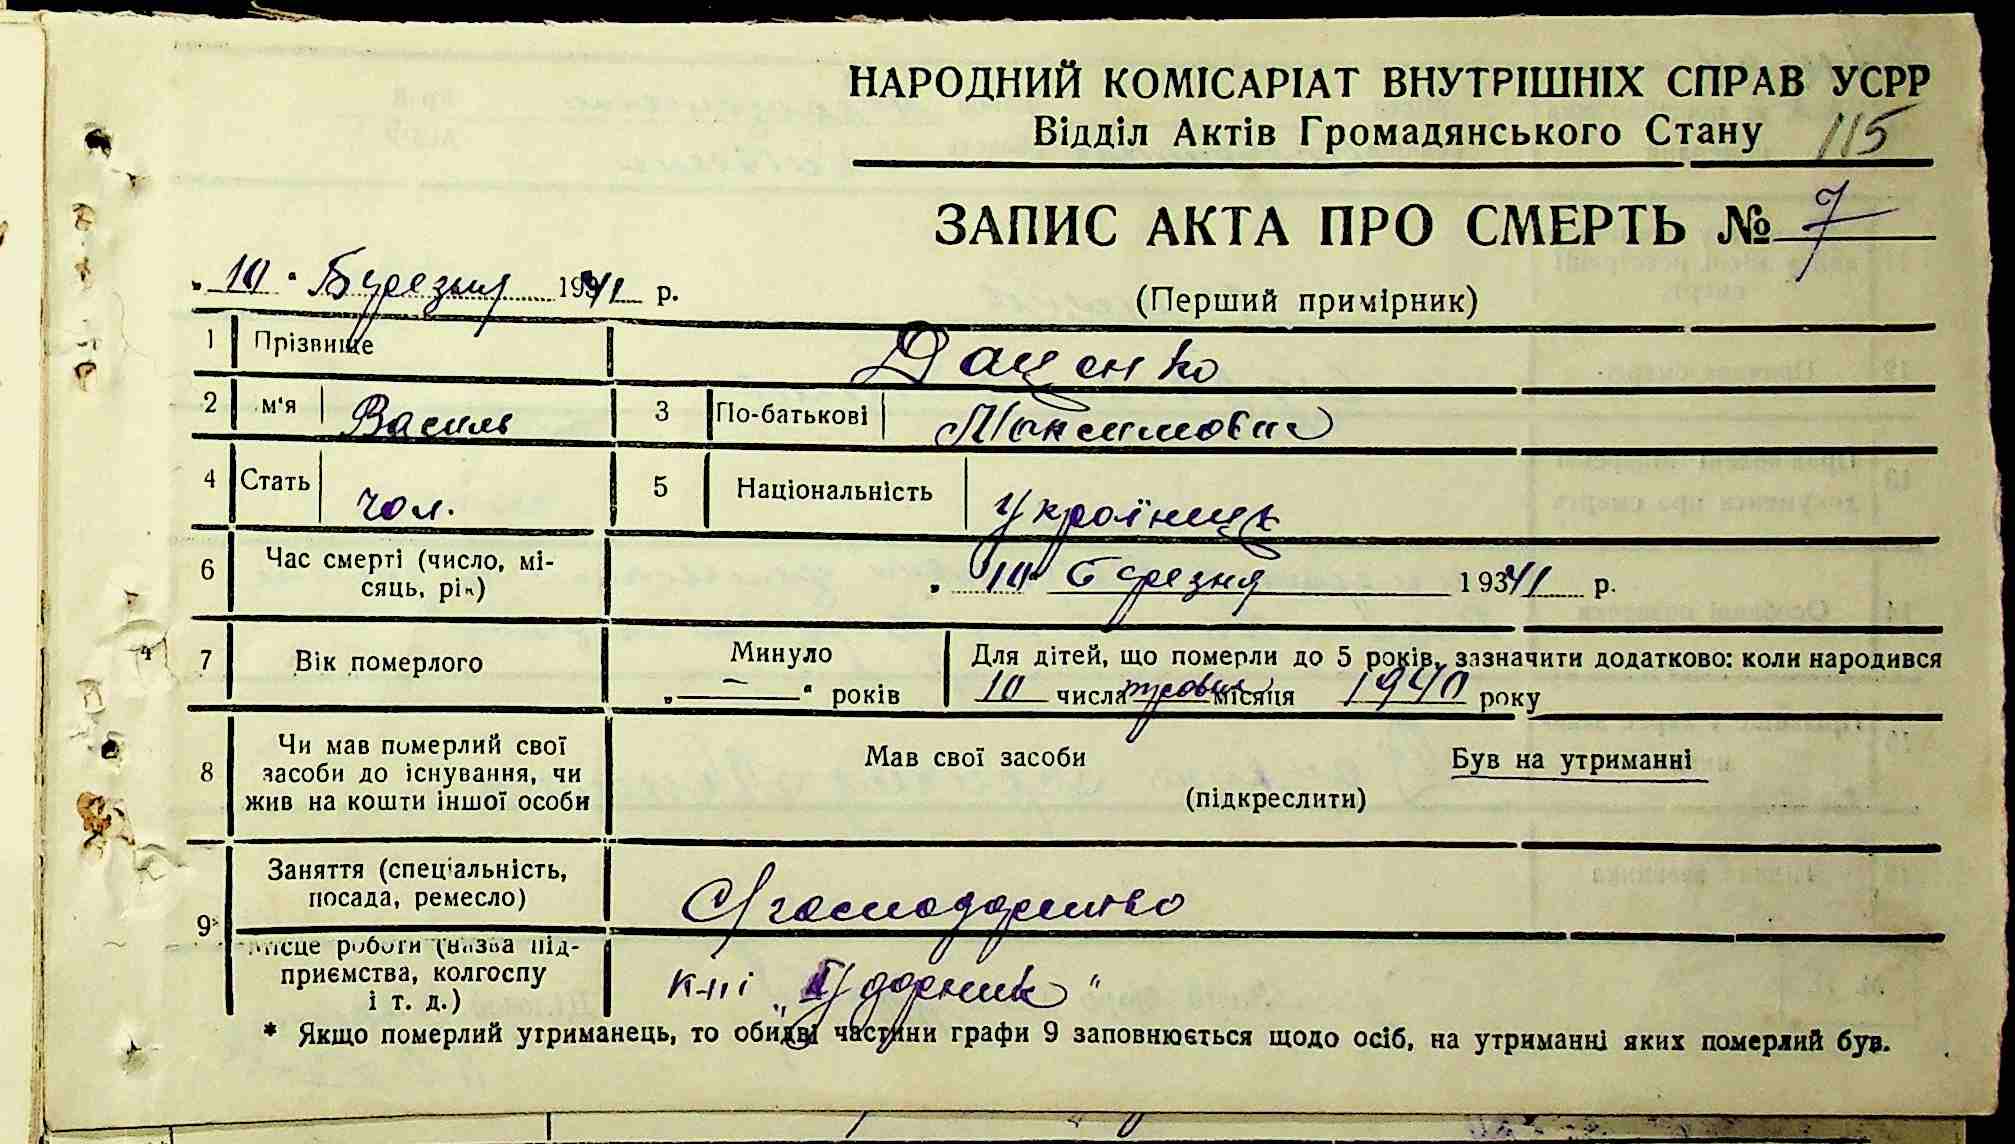 НАРОДНИЙ КОМІСАРІАТ ВНУТРІШНІХ СПРАВ УСРР
Відділ Актів Громадянського Стану 115
ЗАПИС АКТА ПРО СМЕРТЬ № 7
„10" Березня 1941 р.
(Перший примірник)
1 Прізвище Даценко
2 м'я Василь 3 По-батькові Максимович
4 Стать чол. 5 Національність Українець
6 Час смерті (число, мі-
сяць, рік) „10" Березня 1941 р.
7 Вік померлого Минуло „—" років Для дітей, що померли до 5 років, зазначити додатково: коли народився
10 числа травня місяця 1940 року
8 Чи мав померлий свої
засоби до існування, чи
жив на кошти іншої особи
Мав свої засоби Був на утриманні
(підкреслити)
9* Заняття (спеціальність,
посада, ремесло) С/господарство
Місце роботи (назва під-
приємства, колгоспу
і т. д.) „Ударник"
* Якщо померлий утриманець, то обидві частини графи 9 заповнюється щодо осіб, на утриманні яких померлий був.